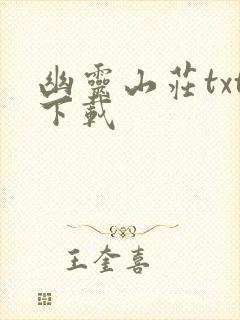 幽靈山莊txt
下載
王奎喜